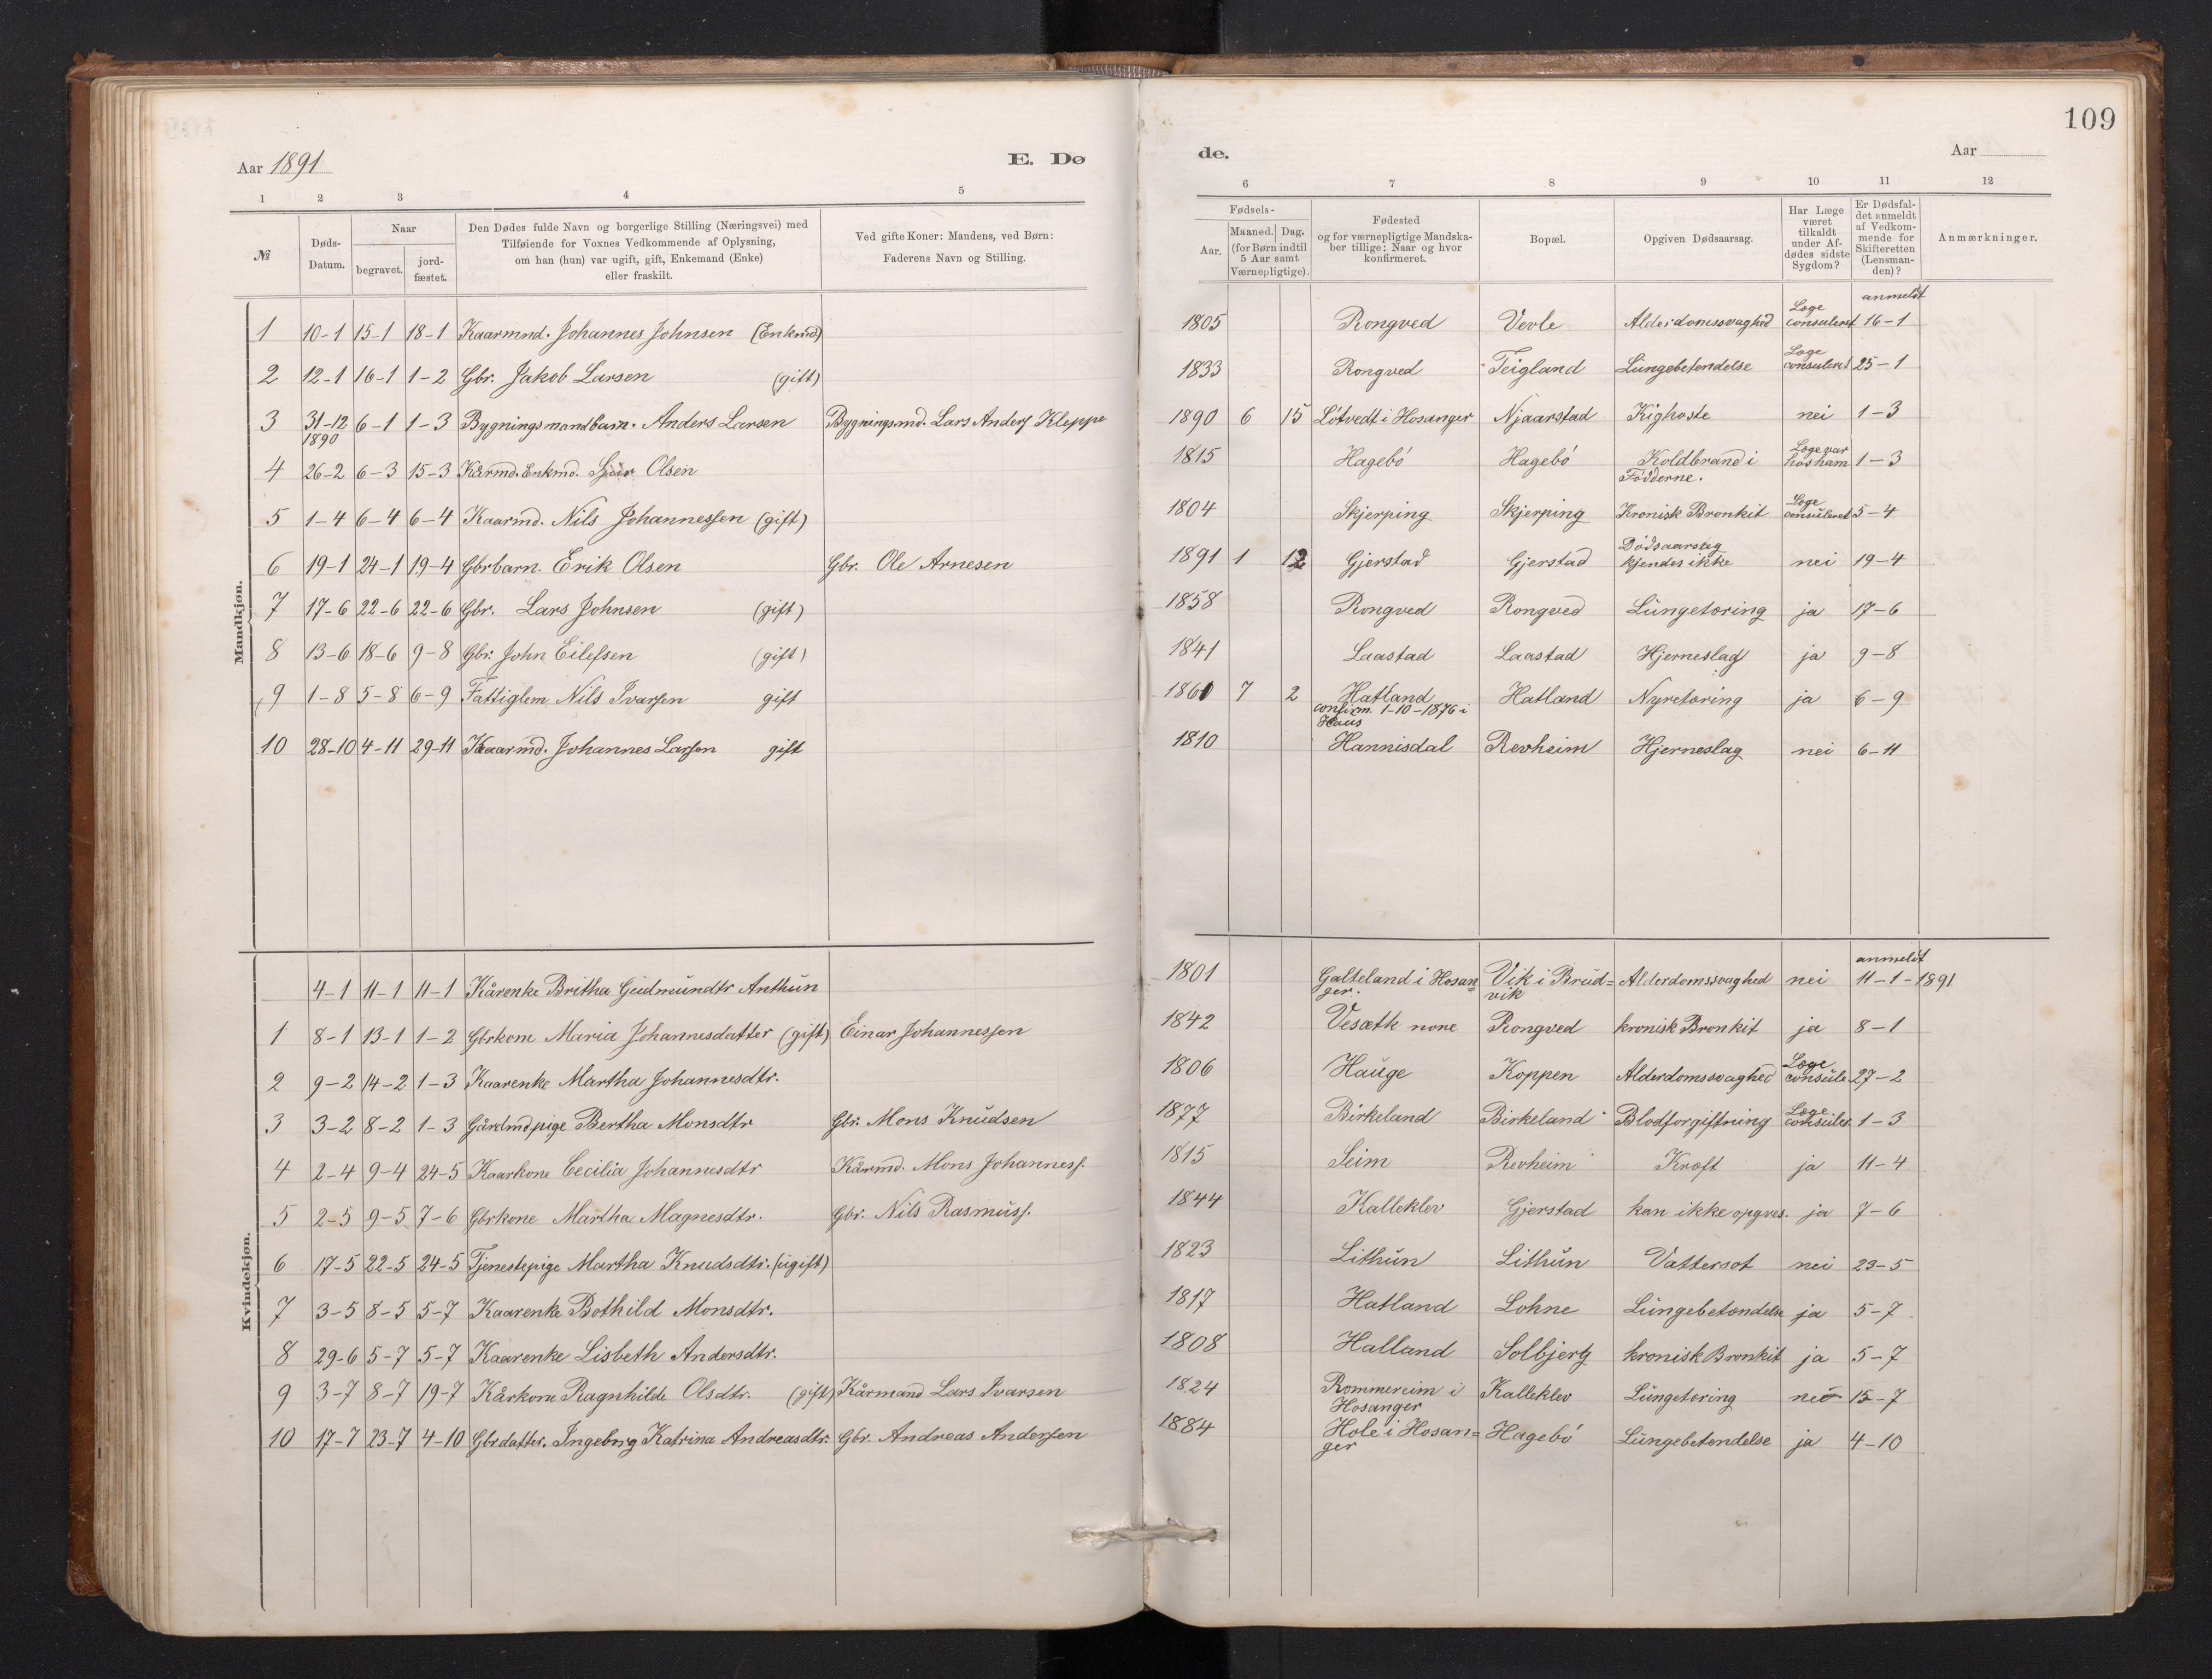 109
Aar 1891
E. Dø
de.
Aar
1 2 3 4 5
6 7 8 9 10 11 12
№
Døds-
Datum.
Naar
begravet.
jord-
fæstet.
Den Dødes fulde Navn og borgerlige Stilling (Næringsvei) med
Tilføiende for Voxnes Vedkommende af Oplysning,
om han (hun) var ugift, gift, Enkemand (Enke)
eller fraskilt.
Ved gifte Koner: Mandens, ved Børn:
Faderens Navn og Stilling.
Fødsels-
Aar.
Maaned. Dag.
(for Børn indtil
5 Aar samt
Værnepligtige).
Fødested
og for værnepligtige Mandska-
ber tillige: Naar og hvor
konfirmeret.
Bopæl.
Opgiven Dødsaarsag.
Har Læge
været
tilkaldt
under Af-
dødes sidste
Sygdom?
Er Dødsfal-
det anmeldt
af Vedkom-
mende for
Skifteretten
(Lensman-
den)?
Anmærkninger.
Mandkjøn.
1 10-1 15-1 18-1 Kaarmnd. Johannes Johnsen (Enkmd) 1805 Rongved Vevle Alderdomssvaghed Læge consuleret anmeldt 16-1
2 12-1 16-1 1-2 Gbr. Jakob Larsen (gift) 1833 Rongved Teigland Lungebetendelse Læge consuleret 25-1
3 31-12 1890 6-1 1-3 Bygningsmandbarn. Anders Larsen Bygningsmd. Lars Anders Kleppe 1890 6 15 Løtvedt i Hosanger Njaarstad Kighoste nei 1-3
4 26-2 6-3 15-3 Kårmd. Enkmd. Sjur Olsen 1815 Hagebø Hagebø Koldbrand i Fødderne. Læge var hos ham 1-3
5 1-4 6-4 6-4 Kaarmd. Nils Johannessen (gift) 1804 Skjerping Skjerping Kronisk Bronkit Læge consuleret 5-4
6 19-1 24-1 19-4 Gbrbarn. Erik Olsen Gbr. Ole Arnesen 1891 1 12 Gjerstad Gjerstad Dødsaarsag kjendes ikke nei 19-4
7 17-6 22-6 22-6 Gbr. Lars Johnsen (gift) 1858 Rongved Rongved Lungetæring ja 17-6
8 13-6 18-6 9-8 Gbr. John Eilefsen (gift) 1841 Laastad Laastad Hjerneslag ja 9-8
9 1-8 5-8 6-9 Fattiglem Nils Ivarsen gift 1861 7 2 Hatland confirm. 1-10-1876 i Haus Hatland Nyretæring ja 6-9
10 28-10 4-11 29-11 Kaarmd. Johannes Larsen gift 1810 Hannisdal Revheim Hjerneslag nei 6-11
Kvindekjøn.
4-1 11-1 11-1 Kårenke Britha Gudmundtr Anthun 1801 Galteland i Hosanger. Vik i Brudvik Alderdomssvaghed nei anmeldt 11-1-1891
1 8-1 13-1 1-2 Gbrkone Maria Johannesdatter (gift) Einar Johannessen 1842 Vesæth nore Rongved kronisk Bronkit ja 8-1
2 9-2 14-2 1-3 Kaarenke Martha Johannesdtr. 1806 Hauge Koppen Alderdomssvaghed Læge consule 27-2
3 3-2 8-2 1-3 Gårdmdpige Bertha Monsdtr Gbr. Mons Knudsen 1877 Birkeland Birkeland Blodforgiftning Læge consuler 1-3
4 2-4 9-4 24-5 Kaarkone Cecilia Johannesdtr Kårmd. Mons Johanness. 1815 Seim Revheim Kræft ja 11-4
5 2-5 9-5 7-6 Gbrkone Martha Magnesdtr. Gbr. Nils Rasmuss. 1844 Kalleklev Gjerstad kan ikke opgves. ja 7-6
6 17-5 22-5 24-5 Tjenestepige Martha Knudsdtr. (ugift) 1823 Lithun Lithun Vattersot nei 23-5
7 3-5 8-5 5-7 Kaarenke Bothild Monsdtr. 1817 Hatland Lohne Lungebetændelse ja 5-7
8 29-6 5-7 5-7 Kaarenke Lisbeth Andersdtr. 1808 Halland Solbjerg kronisk Bronkit ja 5-7
9 3-7 8-7 19-7 Kårkone Ragnhilde Olsdtr. (gift) Kårmand Lars Ivarsen 1824 Rommereim i Hosanger Kalleklev Lungetæring nei 15-7
10 17-7 23-7 4-10 Gbrdatter. Ingeborg Katrina Andreasdtr. Gbr. Andreas Andersen 1884 Hole i Hosanger Hagebø Lungebetendelse ja 4-10